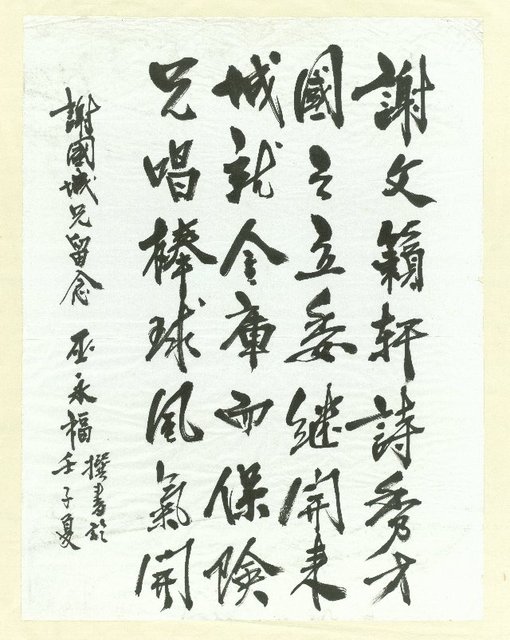 謝文籟軒詩秀才
國之立委繼開來
城就金庫而保險
兄唱棒球風氣開
謝國城兄留念 巫永福
撰書於
壬子夏